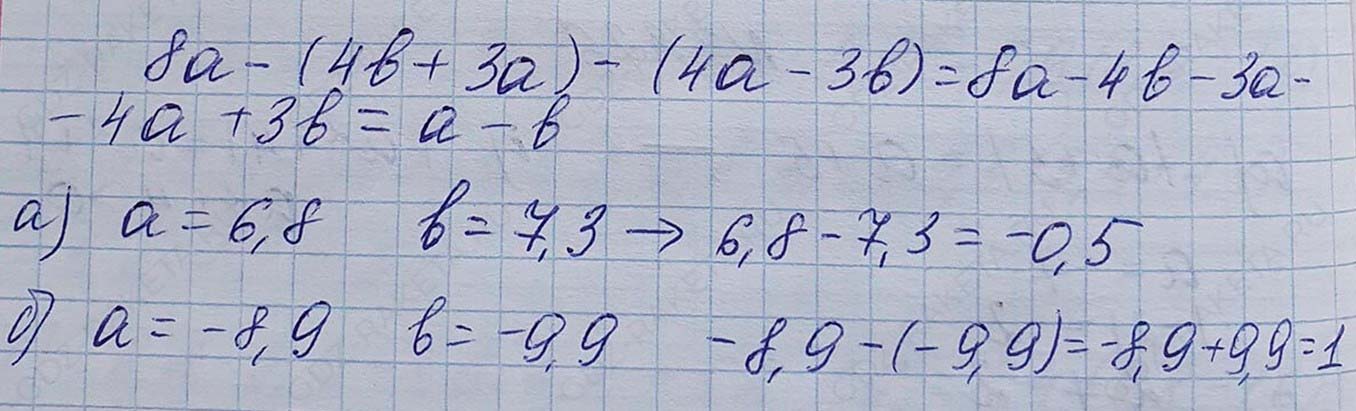 8a - (4в + 3a) - (4a - 3в) = 8a - 4в - 3a -
- 4a + 3в = a - в
а) a = 6,8 в = 7,3 → 6,8 - 7,3 = -0,5
б) a = -8,9 в = -9,9 -8,9 - (-9,9) = -8,9 + 9,9 = 1